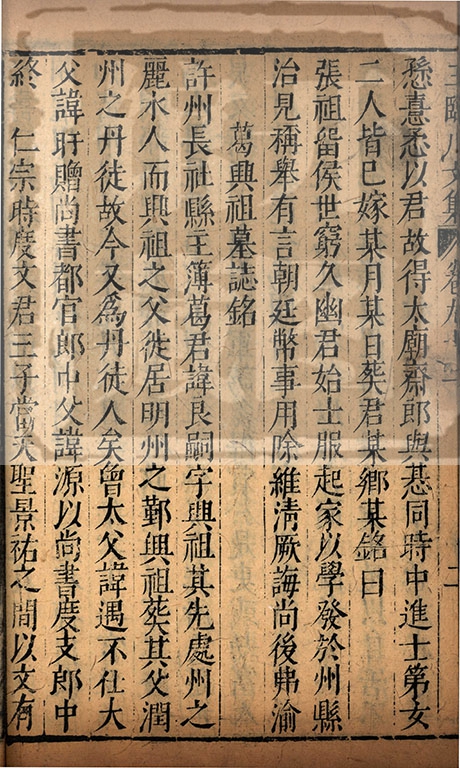 王臨川文集 卷九十
愻憙悉以君故得太廟齋郎與惎同時中進士第女
二人皆已嫁某月某日葬君某鄉某銘曰
張祖留侯世窮久幽君始士服起家以學發於州縣
治見稱舉有言朝廷幣事用除維清厥誨尚後弗渝
葛興祖墓誌銘
許州長社縣主簿葛君諱良嗣字興祖其先處州之
麗水人而興祖之父徙居明州之鄞興祖葬其父潤
州之丹徒故今又爲丹徒人矣曾太父諱遇不仕大
父諱旰贈尚書都官郎中父諱源以尚書度支郎中
終 仁宗時度支君三子當天聖景祐之間以文有